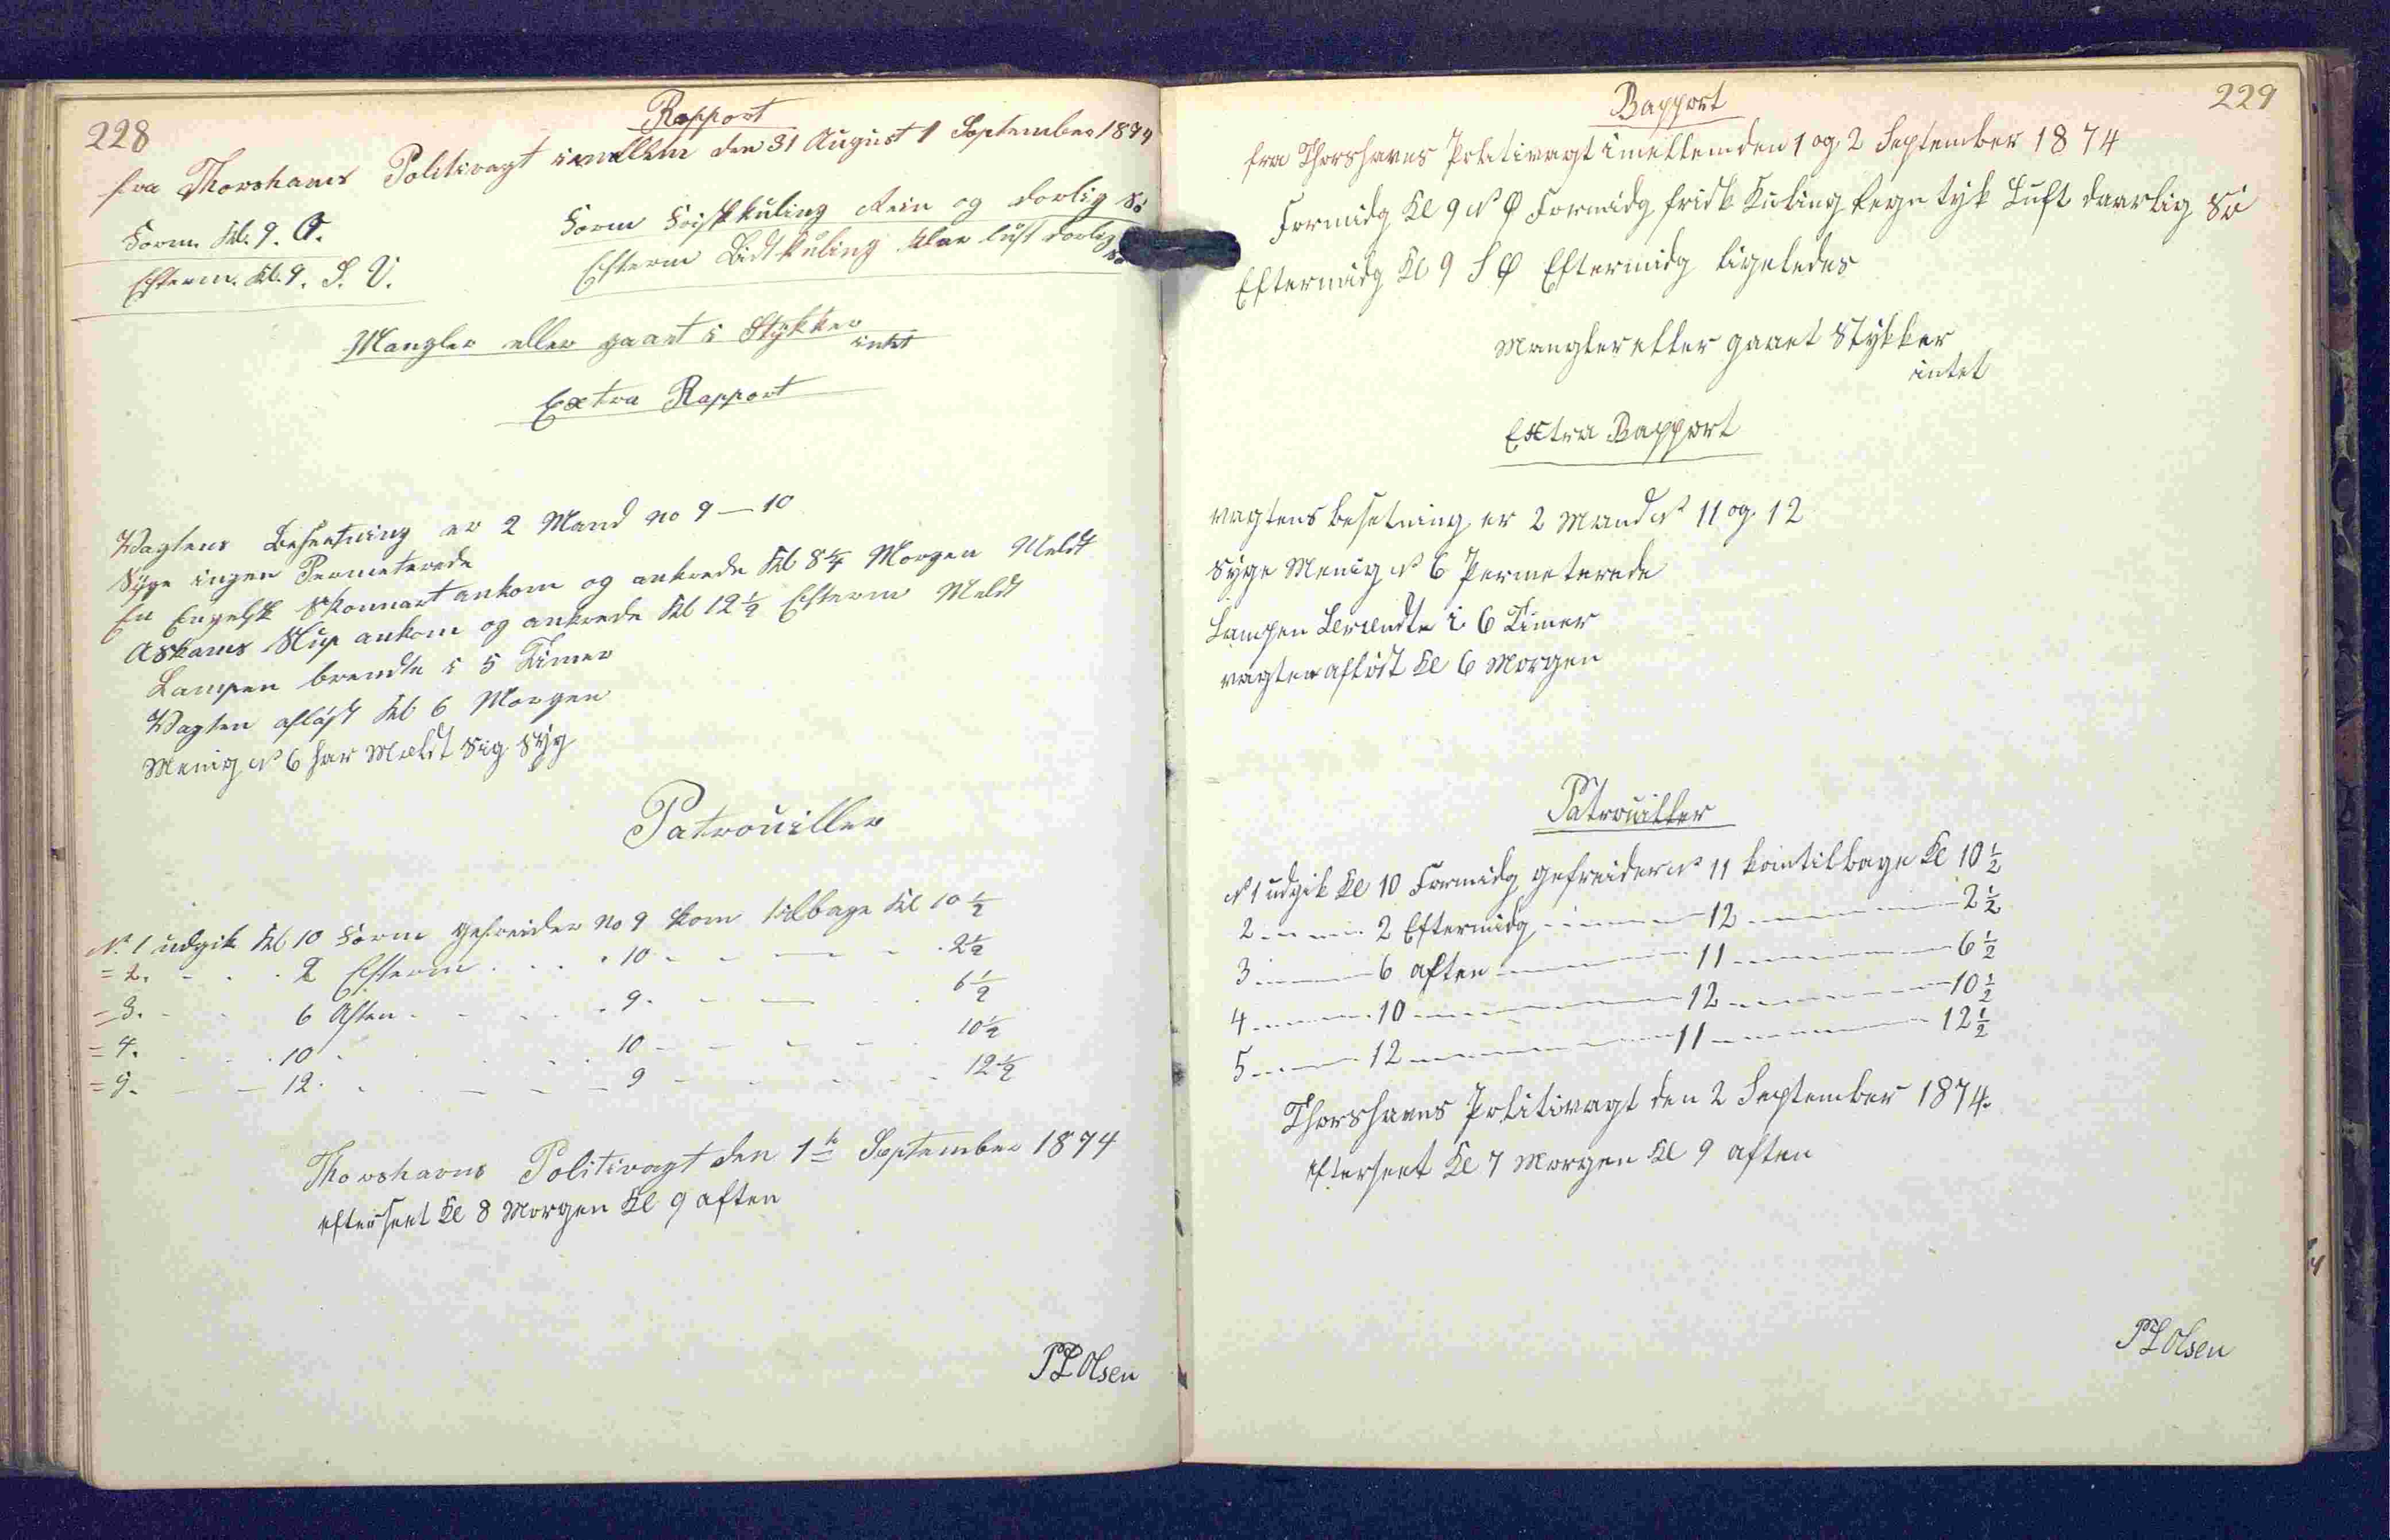 228
Rapport
fra Thorshavns Politivagt imellem den 31 August 1 September 1874
Form. Kl. 9. O.
Form Friskkuling Rein og dorlig Sö
Efterm. Kl. 9. S. V.
Efterm Lidtkuling klar luft dorlig Sö
Mangler eller gaaet i Stykker
intet
Extra Rapport
Vagtens Besætning er 2 Mand no 9 — 10
Syge ingen Permeterede
En Engelsk Skonnart ankom og ankrede Kl 8 1/4 Morgen Meldt
Askams Slup ankom og ankrede Kl 12 1/2 Efterm Meldt
Lampen brendte i 5 Timer
Vagten aflöst Kl 6 Morgen
Menig No 6 har Mældt sig syg
Patrouiller
N. 1 udgik Kl 10 Form gefreider no 9 kom tilbage Kl 10 1/2
= 2. - - 2 Efterm - - 10 - - - 2 1/2
= 3. - - 6 Aften - - 9 - - - 6 1/2
= 4. - - 10 - - 10 - - - 10 1/2
= 5. - - 12 - - 9 - - - 12 1/2
Thorshavns Politivagt den 1te September 1874
efterseet Kl 8 Morgen Kl 9 aften
PL Olsen
229
Rapport
fra Thorshavns Politivagt imellem den 1 og 2 September 1874
Formidg Kl 9 N Ø Formidg frisk Kuling Regn tyk Luft daarlig Sö
Eftermidg Kl 9 S Ø Eftermidg ligeledes
Mangler eller gaaet Stykker
intet
Extra Rapport
vagtens besetning er 2 Mand No 11 og 12
syge Menig No 6 Permeterede
Lampen Brændte i 6 Timer
vagten aflöst Kl 6 Morgen
Patrouiller
No 1 udgik Kl 10 Formidg gefreider No 11 kom tilbage Kl 10 1/2
2 - - - 2 Eftermidg - - - 12 - - - 2 1/2
3 - - - 6 aften - - - 11 - - - 6 1/2
4 - - - 10 - - - 12 - - - 10 1/2
5 - - - 12 - - - 11 - - - 12 1/2
Thorshavns Politivagt den 2 September 1874.
efterseet Kl 7 Morgen Kl 9 aften
PL Olsen